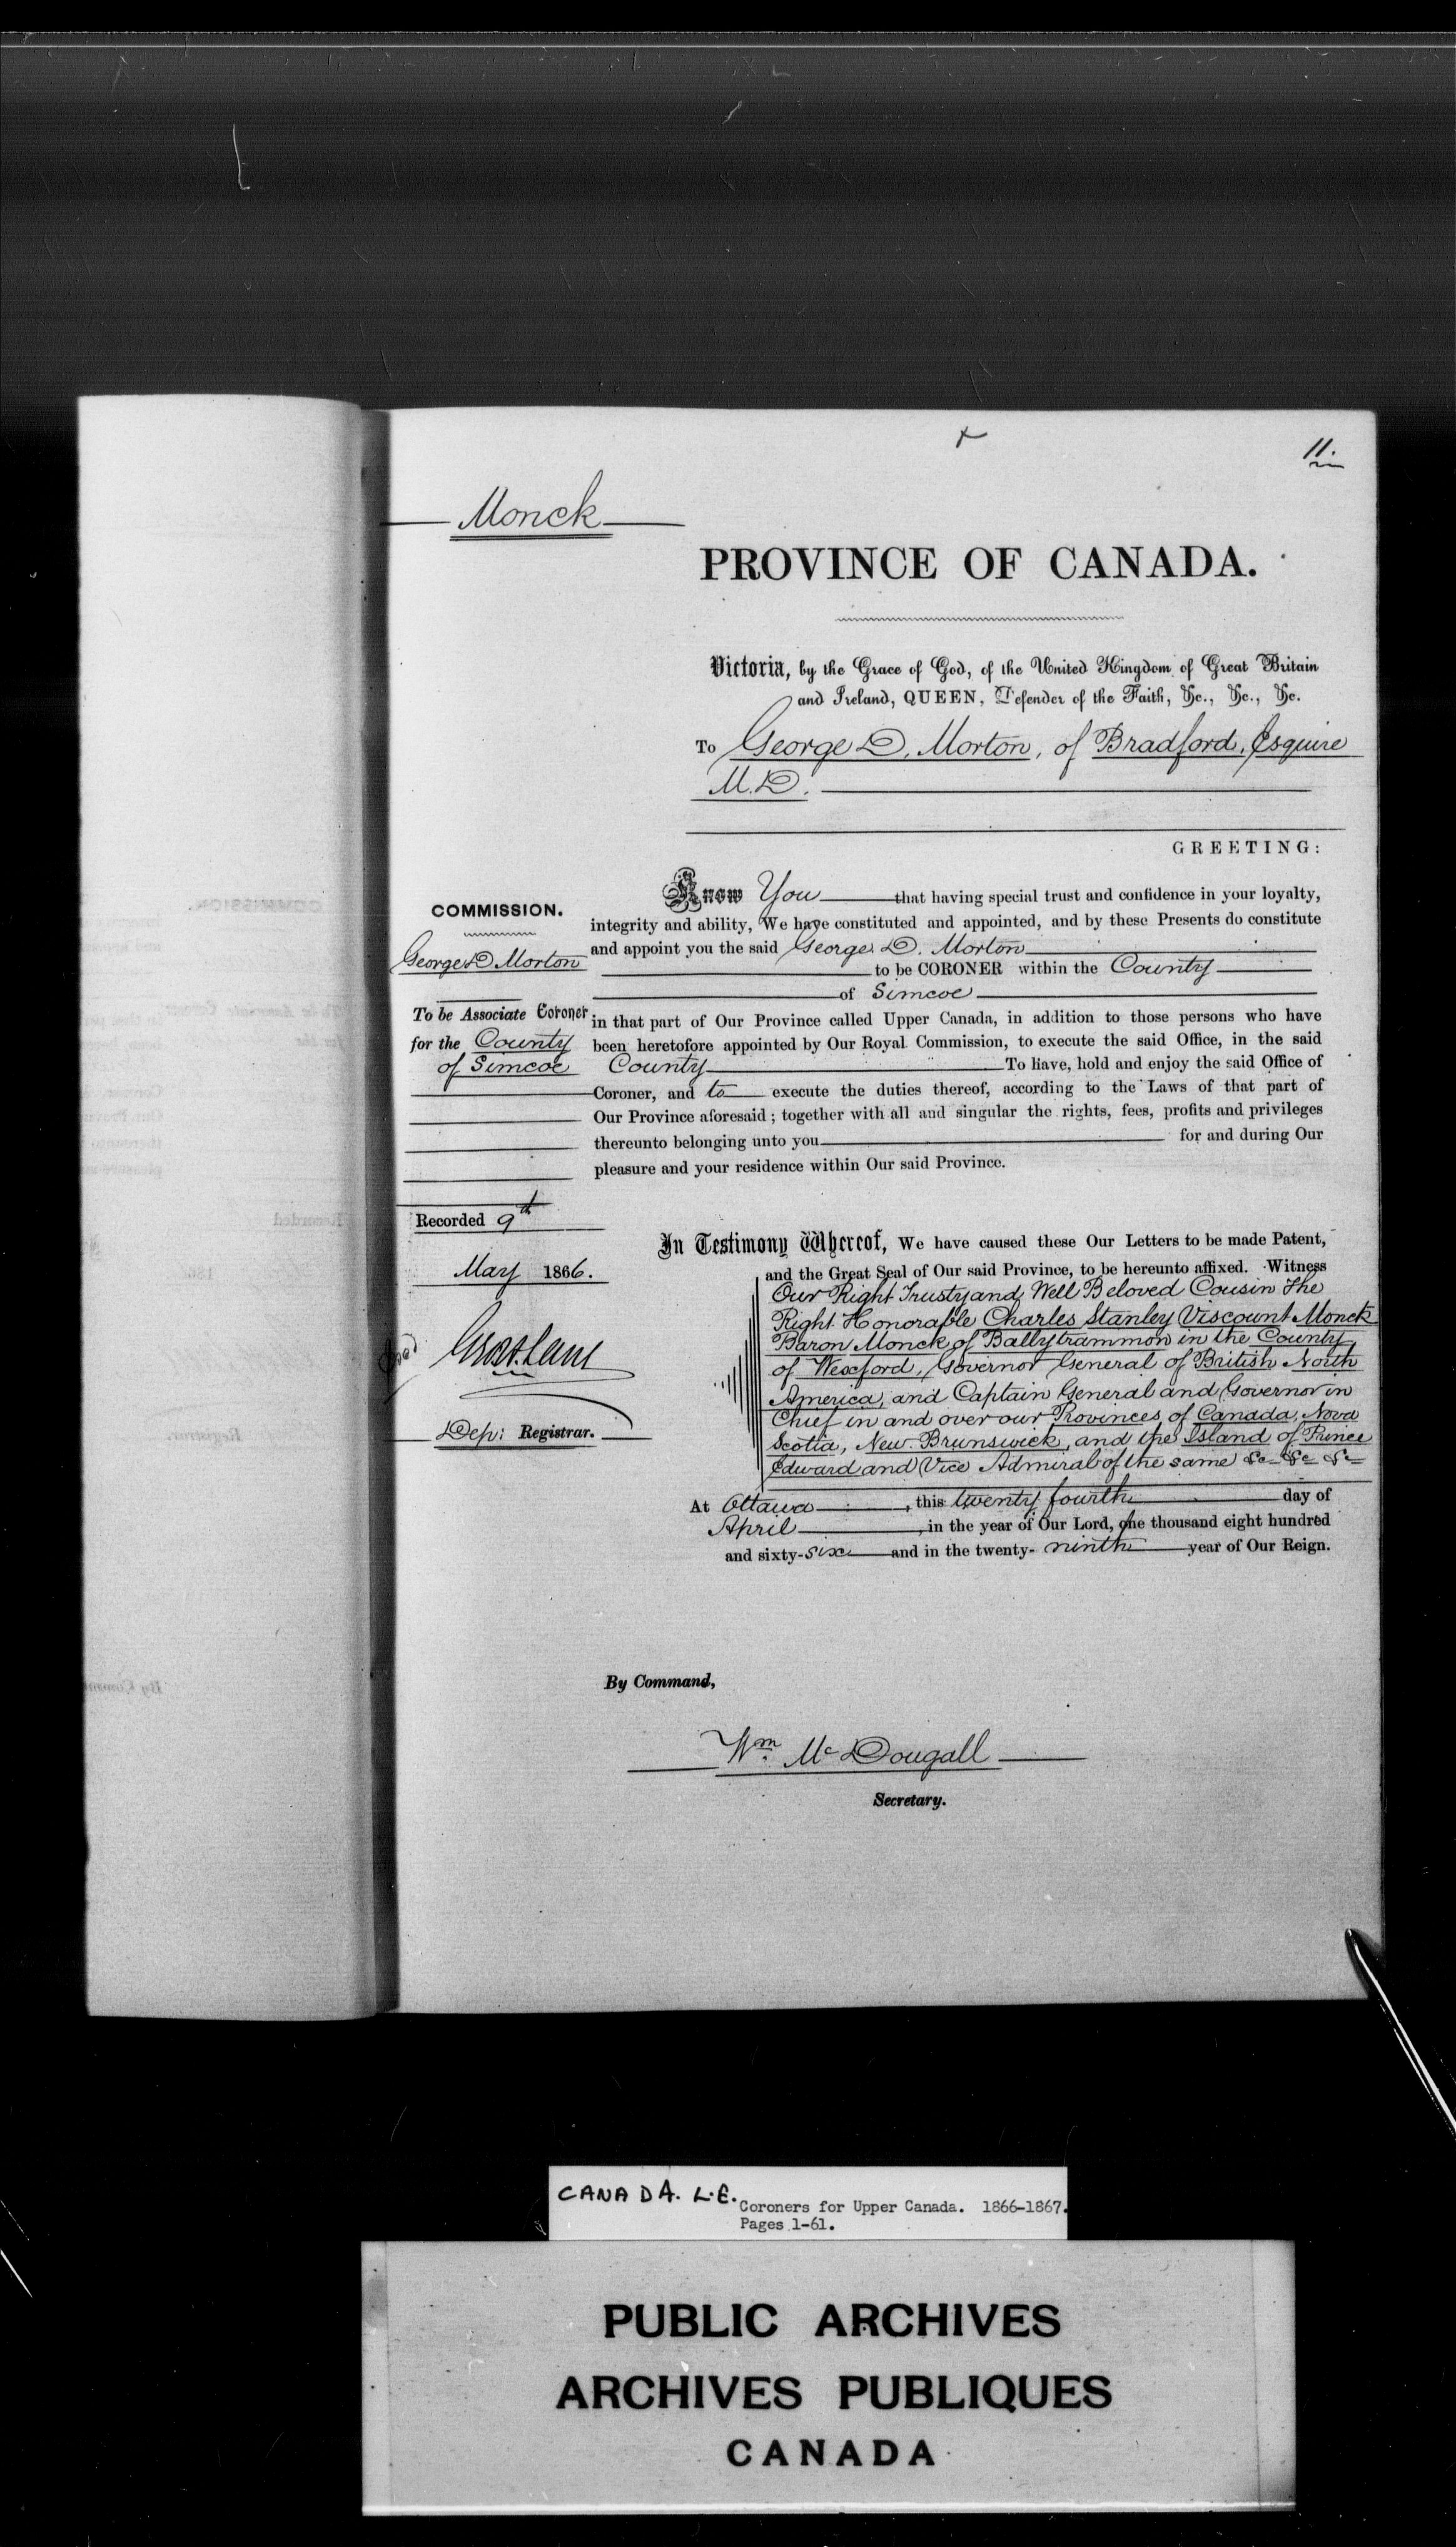 11.
Monck
PROVINCE OF CANADA.
Victoria, by the Grace of God, of the United Kingdom of Great Britain
and Ireland, QUEEN, Defender of the Faith, &c., &c., &c.
To George D. Morton, of Bradford, Esquire
M.D.
GREETING:
COMMISSION.
George D Morton
To be Associate Coroner
for the County
of Simcoe
Know You that having special trust and confidence in your loyalty,
integrity and ability, We have constituted and appointed, and by these Presents do constitute
and appoint you the said George D. Morton
to be CORONER within the County
of Simcoe
in that part of Our Province called Upper Canada, in addition to those persons who have
been heretofore appointed by Our Royal Commission, to execute the said Office, in the said
County To have, hold and enjoy the said Office of
Coroner, and to execute the duties thereof, according to the Laws of that part of
Our Province aforesaid; together with all and singular the rights, fees, profits and privileges
thereunto belonging unto you for and during Our
pleasure and your residence within Our said Province.
Recorded 9th
May 1866.
Dep: Registrar.
In Testimony Whereof, We have caused these Our Letters to be made Patent,
and the Great Seal of Our said Province, to be hereunto affixed. Witness
Our Right Trusty and Well Beloved Cousin The
Right Honorable Charles Stanley Viscount Monck
Baron Monck of Ballytrammon in the County
of Wexford, Governor General of British North
America, and Captain General and Governor in
Chief in and over our Provinces of Canada, Nova
Scotia, New Brunswick, and the Island of Prince
Edward and Vice Admiral of the same &c &c &c
At Ottawa, this twenty fourth day of
April, in the year of Our Lord, one thousand eight hundred
and sixty-six and in the twenty-ninth year of Our Reign.
By Command,
Wm. McDougall
Secretary.
CANADA. L.E.
Coroners for Upper Canada. 1866-1867.
Pages 1-61.
PUBLIC ARCHIVES
ARCHIVES PUBLIQUES
CANADA